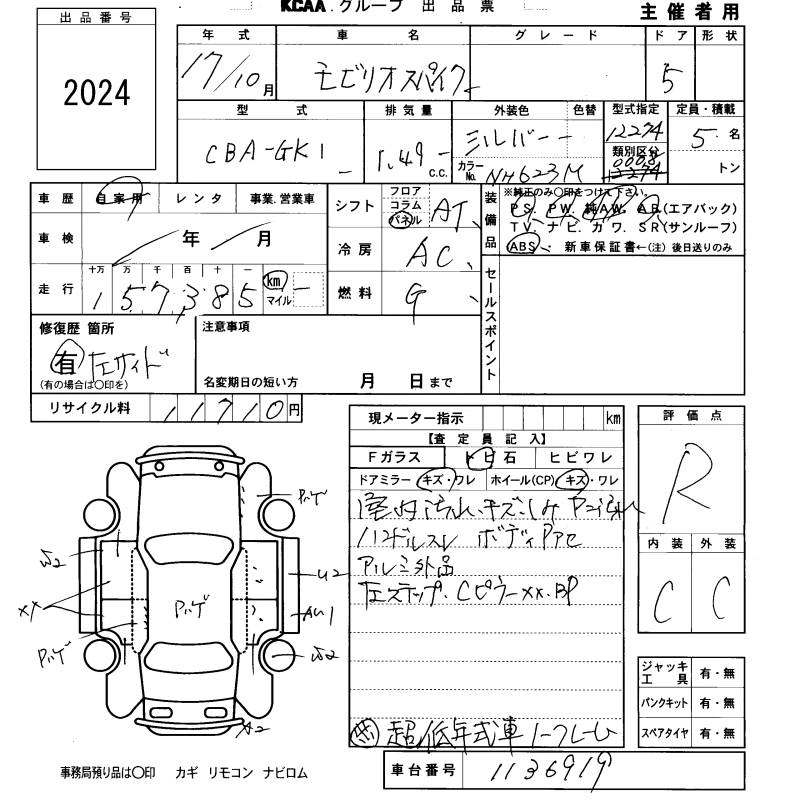 出品番号
2024
KCAA.グループ 出品票
主催者用
年式 車名 グレード ドア 形状
17/10月 モビリオスパイク 5
型式 排気量 外装色 色替 型式指定 定員・積載
CBA-GK1 1.49 c.c. シルバー 12274 5名
カラーNo. NH623M 類別区分 0008 トン
車歴 自家用 レンタ 事業.営業車
車検 年 月
走行 十万 万 千 百 十 一
1 5 7,3 8 5 km マイル
シフト フロア コラム パネル AT
冷房 AC
燃料 G
装備品
※純正のみ○印をつけて下さい。
PS. PW. 純AW. AB(エアバック)
TV. ナビ. カワ. SR(サンルーフ)
ABS 新車保証書←(注)後日送りのみ
セールスポイント
修復歴 箇所
有 左サイド
(有の場合は○印を)
注意事項
名変期日の短い方 月 日まで
リサイクル料 11710円
現メーター指示 km
【査定員記入】
Fガラス トビ石 ヒビワレ
ドアミラー キズ・ワレ ホイール(CP) キズ・ワレ
室内汚れ、キズ、しみ
ハンドルスレ ボディ
アルミ外品
左ステップ.Cピラーxx.BP
超低年式車 ノークレーム
評価点
R
内装 外装
C C
ジャッキ工具 有・無
パンクキット 有・無
スペアタイヤ 有・無
車台番号 1136919
ハゲ
U2
AU1
A2
XX
事務局預り品は○印 カギ リモコン ナビロム